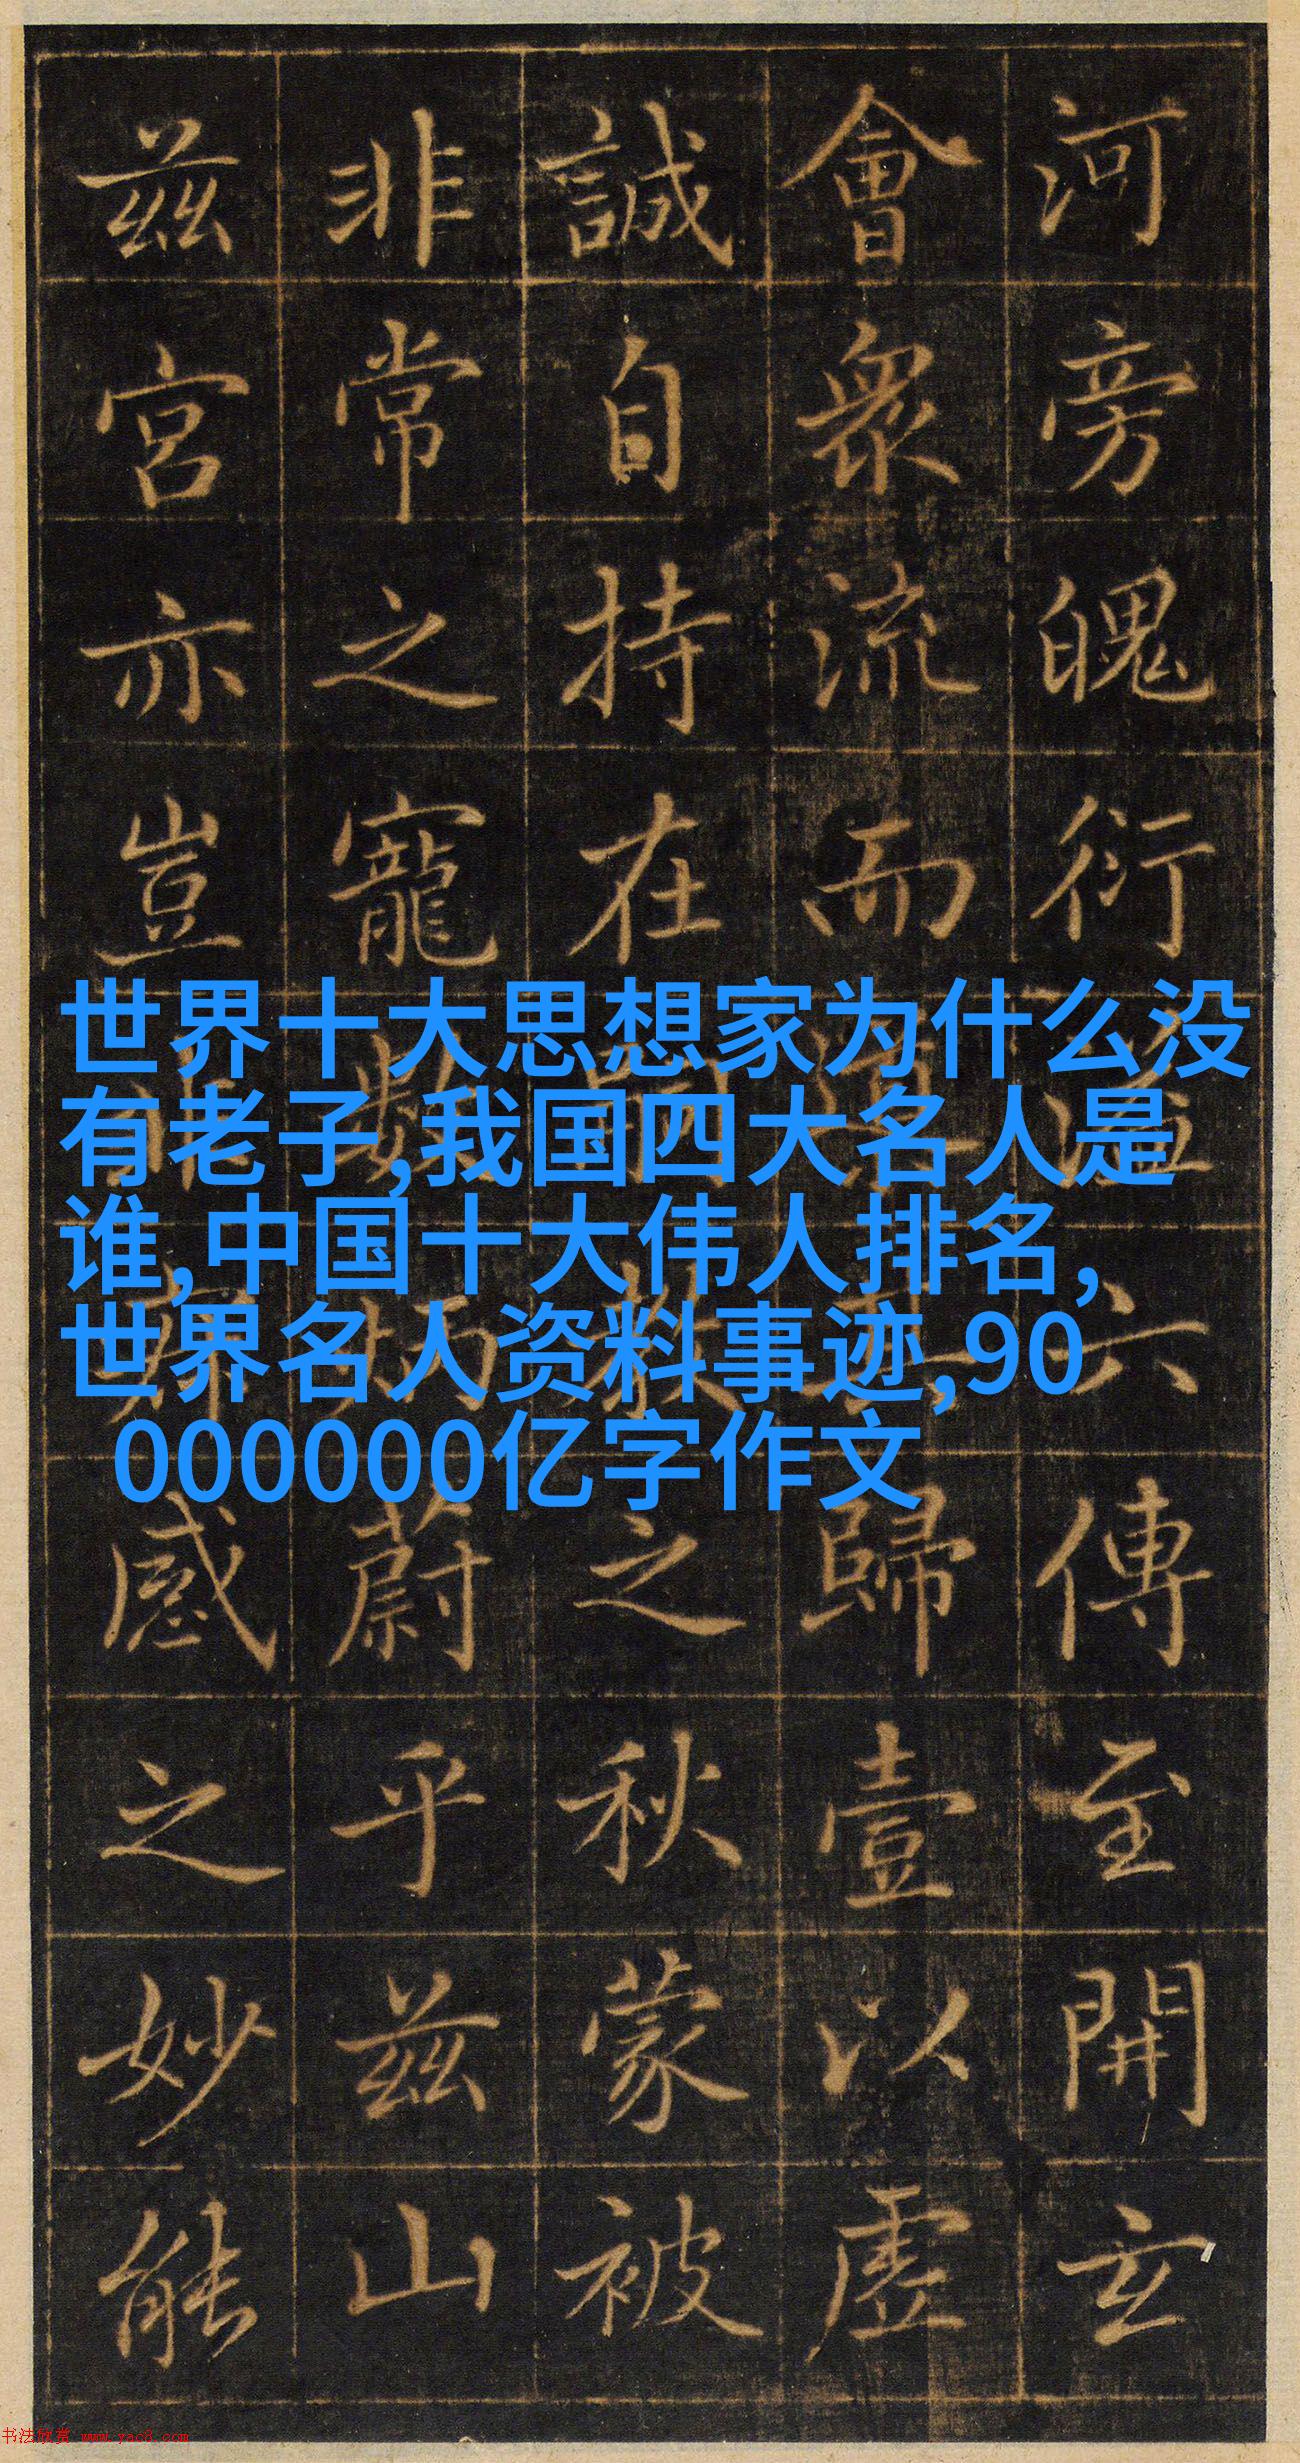 河旁魄衍溢六傳至開玄
會衆流而歸壹以虛
誠自持在之秋蒙被
非常之寵數炳蔚乎兹山
兹宫亦豈感之妙能
世界十大思想家为什么没
有老子,我国四大名人是
谁,中国十大伟人排名,
世界名人资料事迹,90
000000亿字作文
书法欣赏 www.yac8.com